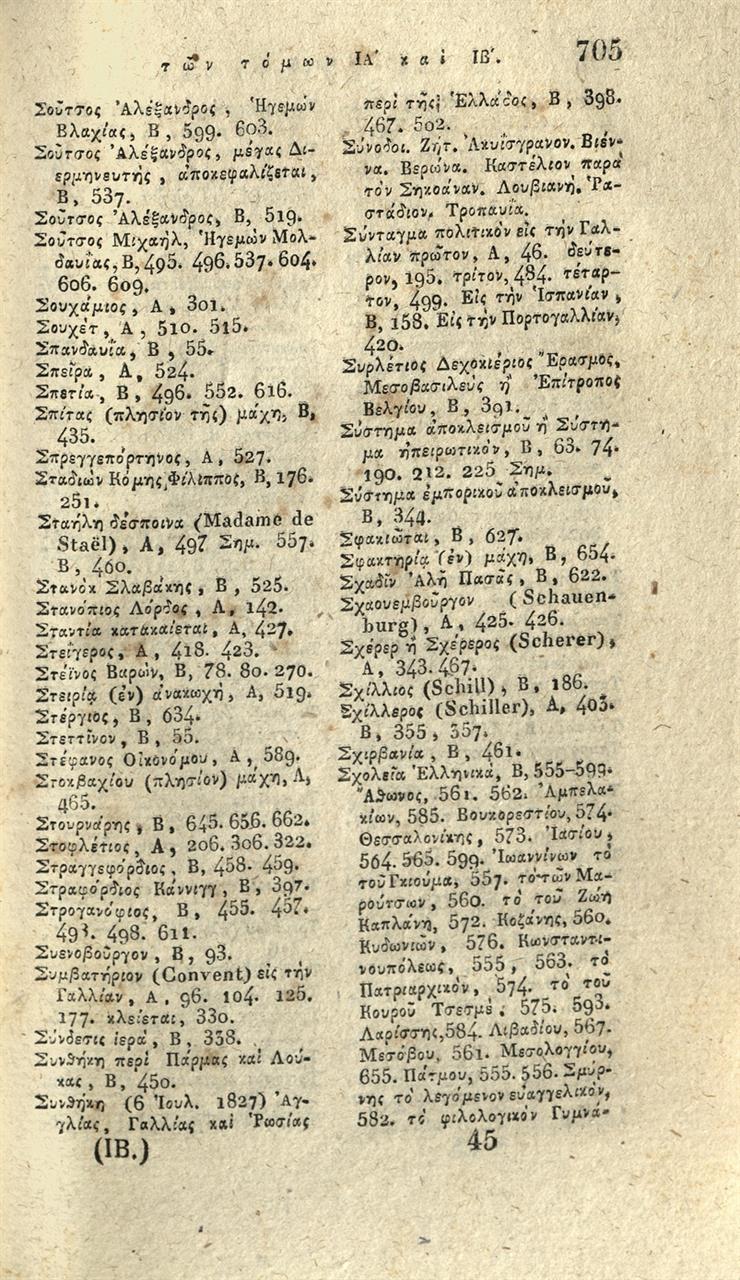 τῶν τόμων ΙΑ΄ καὶ ΙΒ΄. 705
Σοῦτσος Ἀλέξανδρος, Ἡγεμὼν
Βλαχίας, Β, 599. 603.
Σοῦτσος Ἀλέξανδρος, μέγας Δι-
ερμηνευτὴς, ἀποκεφαλίζεται,
Β, 537.
Σοῦτσος Ἀλέξανδρος, Β, 519.
Σοῦτσος Μιχαὴλ, Ἡγεμὼν Μολ-
δαυΐας, Β, 495. 496. 537. 604.
606. 609.
Σουχάμιος, Α, 301.
Σουχὲτ, Α, 510. 515.
Σπανδαυΐα, Β, 55.
Σπεῖρα, Α, 524.
Σπετία, Β, 496. 552. 616.
Σπίτας (πλησίον τῆς) μάχη, Β,
435.
Σπρεγγεπόρτηνος, Α, 527.
Σταδιὼν Κόμης Φίλιππος, Β, 176.
251.
Σταήλη δέσποινα (Madame de
Staël), Α, 497 Σημ. 557.
Β, 460.
Στανὸκ Σλαβάκης, Β, 525.
Στανόπιος Λόρδος, Α, 142.
Σταντία κατακαίεται, Α, 427.
Στείγερος, Α, 418. 423.
Στέϊνος Βαρὼν, Β, 78. 80. 270.
Στειρίᾳ (ἐν) ἀνακωχὴ, Α, 519.
Στέργιος, Β, 634.
Στεττῖνον, Β, 55.
Στέφανος Οἰκονόμου, Α, 589.
Στοκβαχίου (πλησίον) μάχη, Α,
465.
Στουρνάρης, Β, 645. 656. 662.
Στοφλέτιος, Α, 206. 306. 322.
Στραγγεφόρδιος, Β, 458. 459.
Στραφόρδιος Κάννιγγ, Β, 397.
Στρογανόφιος, Β, 455. 457.
493. 498. 611.
Συενοβοῦργον, Β, 93.
Συμβατήριον (Convent) εἰς τὴν
Γαλλίαν, Α, 96. 104. 125.
177. κλείεται, 330.
Σύνδεσις ἱερὰ, Β, 338.
Συνθήκη περὶ Πάρμας καὶ Λού-
κας, Β, 450.
Συνθήκη (6 Ἰουλ. 1827) Ἀγ-
γλίας, Γαλλίας καὶ Ῥωσίας
(ΙΒ.)
περὶ τῆς Ἑλλάδος, Β, 398.
467. 502.
Σύνοδοι. Ζήτ. Ἀκυΐσγρανον. Βιέν-
να. Βερώνα. Καστέλιον παρὰ
τὸν Σηκοάναν. Λουβιανὴ. Ῥα-
στάδιον. Τροπαυΐα.
Σύνταγμα πολιτικὸν εἰς τὴν Γαλ-
λίαν πρῶτον, Α, 46. δεύτε-
ρον, 195. τρίτον, 484. τέταρ-
τον, 499. Εἰς τὴν Ἱσπανίαν,
Β, 158. Εἰς τὴν Πορτογαλλίαν,
420.
Συρλέτιος Δεχοκιέριος Ἔρασμος,
Μεσοβασιλεὺς ἢ Ἐπίτροπος
Βελγίου, Β, 391.
Σύστημα ἀποκλεισμοῦ ἢ Σύστη-
μα ἠπειρωτικὸν, Β, 63. 74.
190. 212. 225 Σημ.
Σύστημα ἐμπορικοῦ ἀποκλεισμοῦ,
Β, 344.
Σφακιῶται, Β, 627.
Σφακτηρίᾳ (ἐν) μάχη, Β, 654.
Σχαδὶν Ἀλῆ Πασᾶς, Β, 622.
Σχαουεμβοῦργον (Schauen-
burg), Α, 425. 426.
Σχέρερ ἢ Σχέρερος (Scherer),
Α, 343. 467.
Σχίλλιος (Schill), Β, 186.
Σχίλλερος (Schiller), Α, 403.
Β, 355, 357.
Σχιρβανία, Β, 461.
Σχολεῖα Ἑλληνικὰ, Β, 555-599.
Ἄθωνος, 561. 562. Ἀμπελα-
κίων, 585. Βουκορεστίου, 574.
Θεσσαλονίκης, 573. Ἰασίου,
564. 565. 599. Ἰωαννίνων τὸ
τοῦ Γκιούμα, 557. τὸ τῶν Μα-
ρούτσων, 560. τὸ τοῦ Ζώη
Καπλάνη, 572. Κοζάνης, 560.
Κυδωνιῶν, 576. Κωνσταντι-
νουπόλεως, 555, 563. τὸ
Πατριαρχικὸν, 574. τὸ τοῦ
Κουροῦ Τσεσμὲ, 575. 593.
Λαρίσσης, 584. Λιβαδίου, 567.
Μεσόβου, 561. Μεσολογγίου,
655. Πάτμου, 555. 556. Σμύρ-
νης τὸ λεγόμενον εὐαγγελικὸν,
582. τὸ φιλολογικὸν Γυμνά-
45